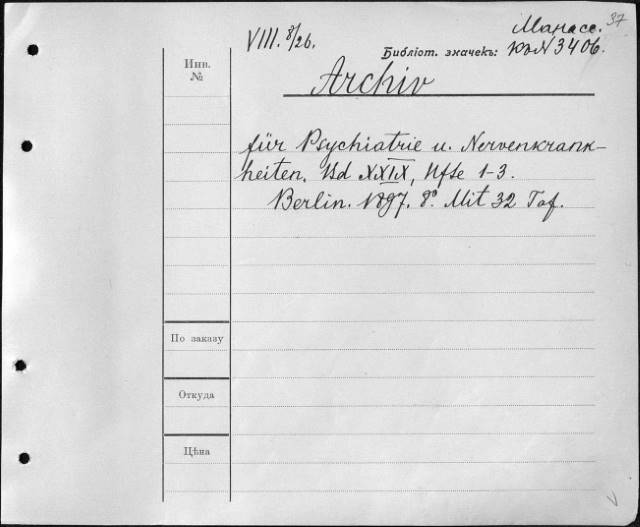 37
Манасс.
VIII. 8/26.
Библіот. значекъ: 3406.
Инв.
№
Archiv
für Psychiatrie u. Nervenkrank-
heiten. Bd XXIX, Hfte 1-3.
Berlin. 1897. 8º. Mit 32 Taf.
По заказу
Откуда
Цѣна